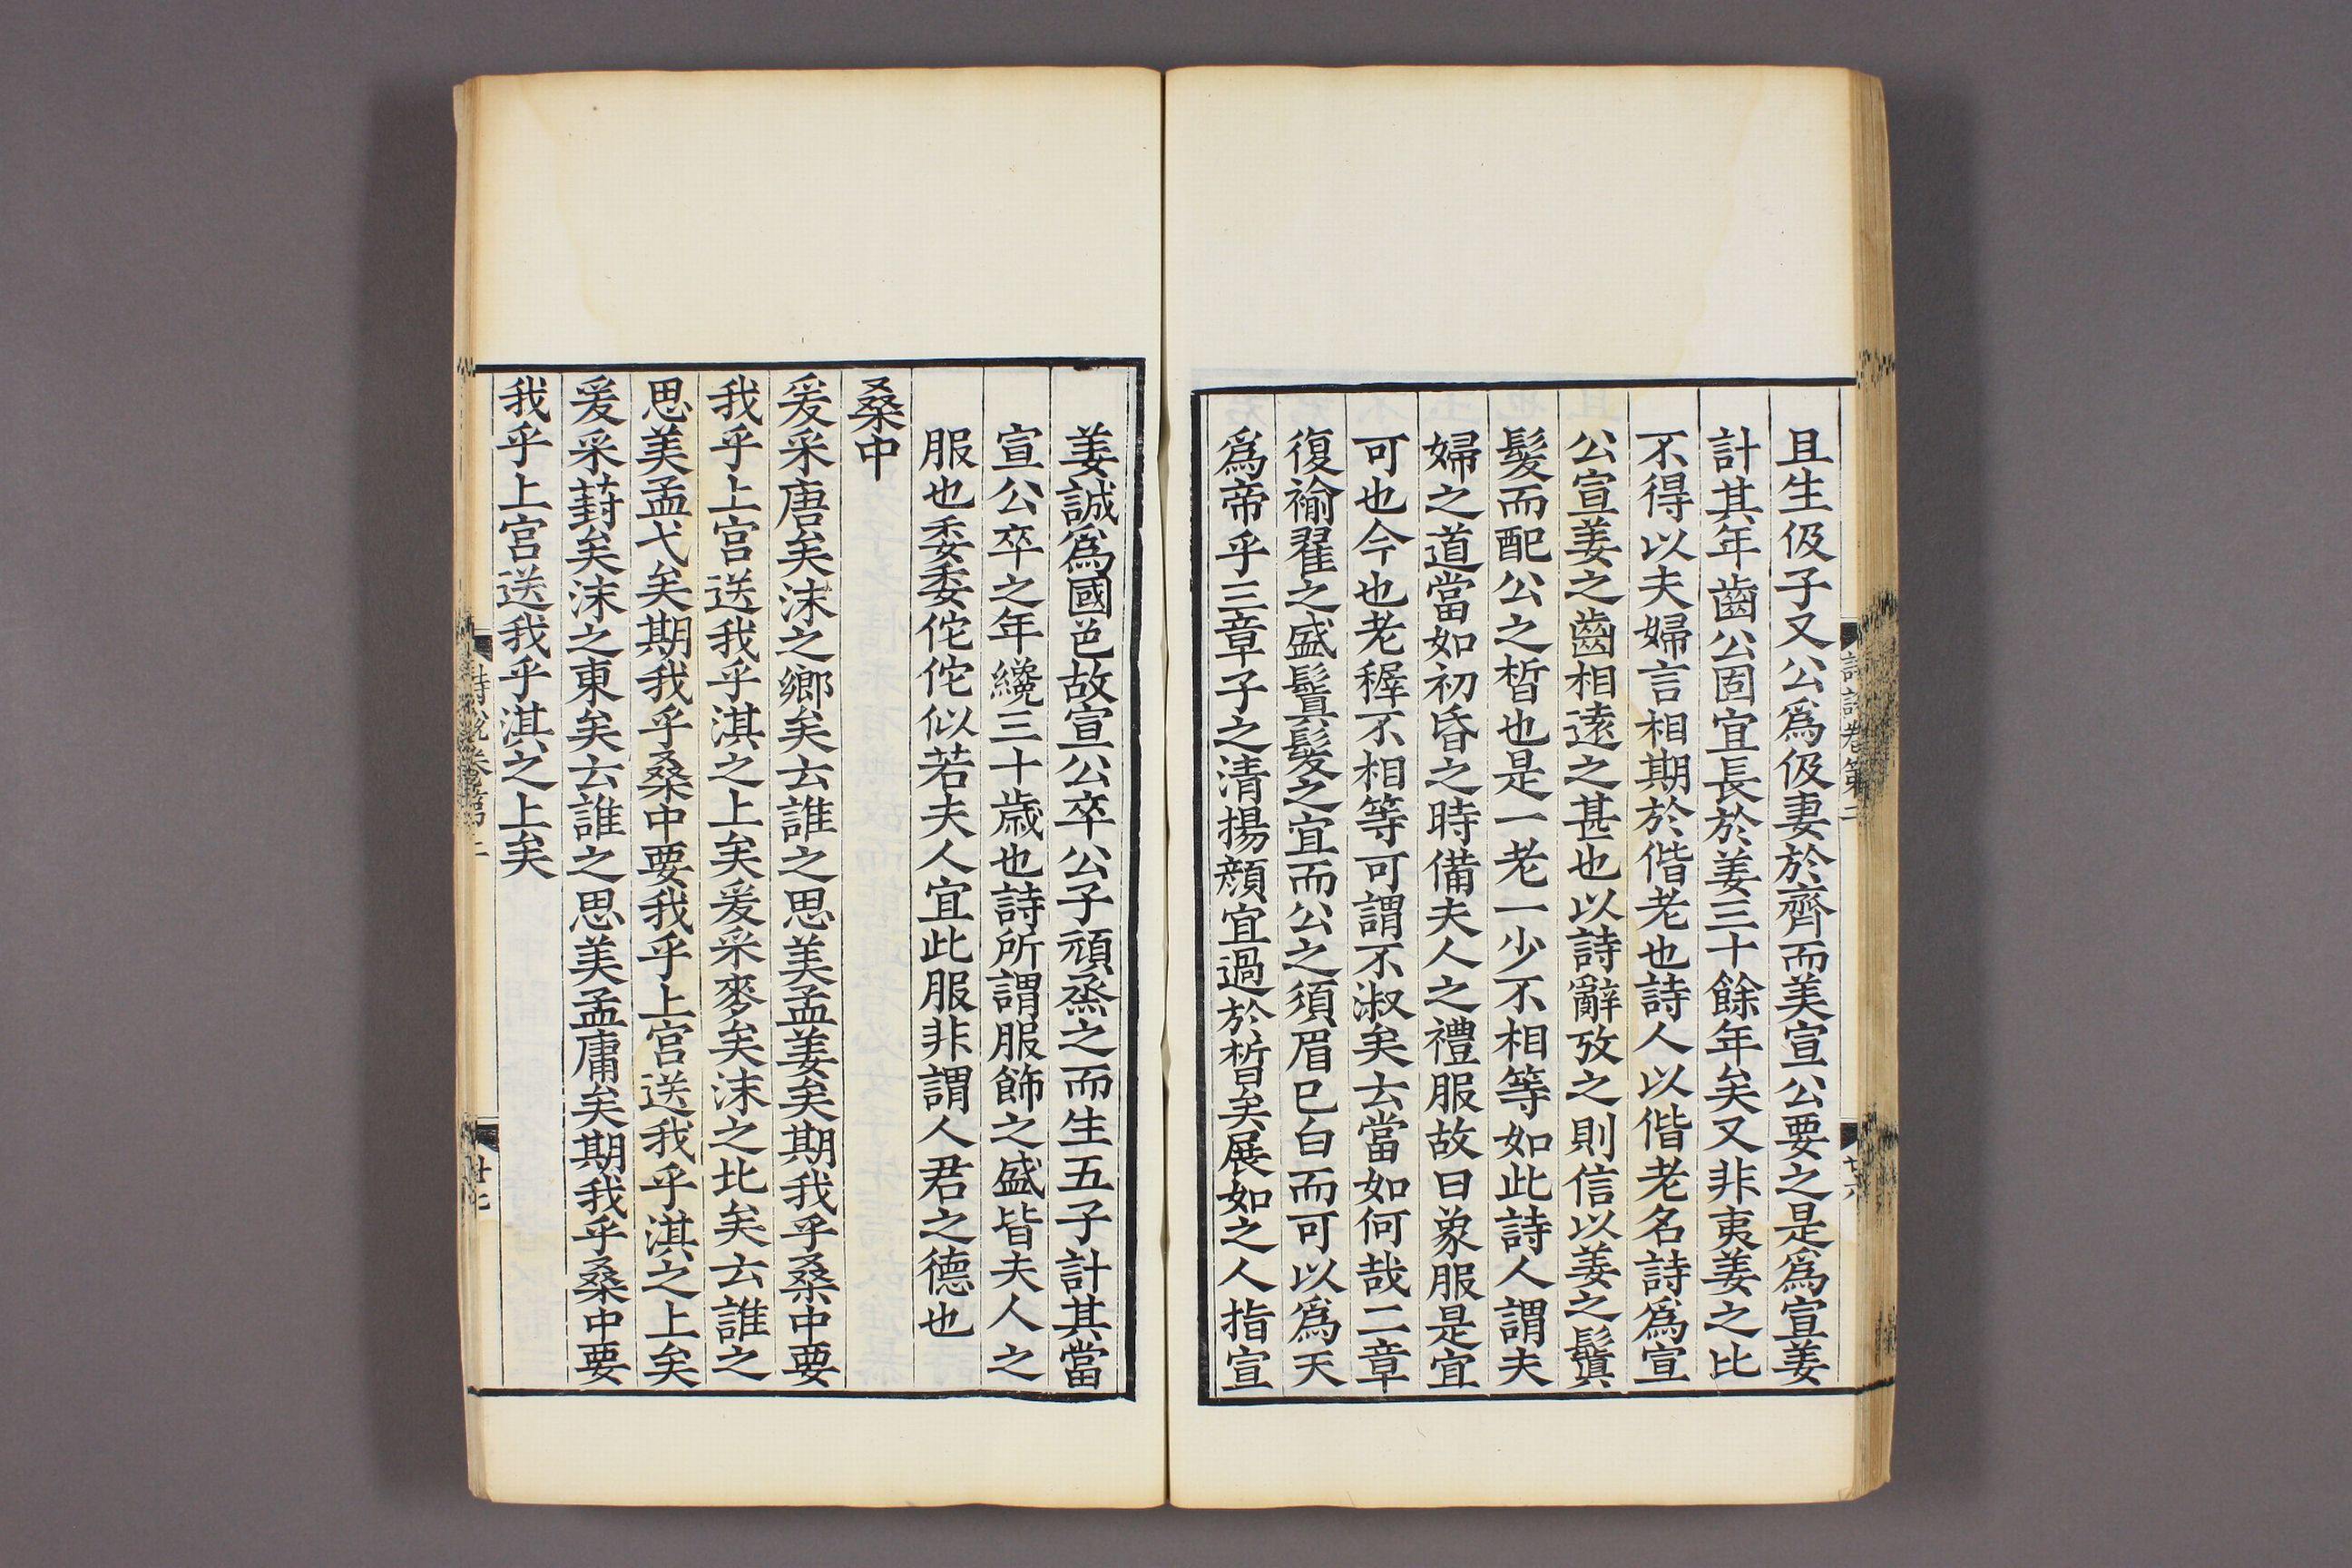 且生伋子又公爲伋妻於齊而美宣公要之是爲宣姜
計其年齒公固宜長於姜三十餘年矣又非夷姜之比
不得以夫婦言相期於偕老也詩人以偕老名詩爲宣
公宣姜之齒相遠之甚也以詩辭攷之則信以姜之鬒
髮而配公之晳也是一老一少不相等如此詩人謂夫
婦之道當如初昏之時備夫人之禮服故曰象服是宜
可也今也老穉不相等可謂不淑矣云當如何哉二章
復褕翟之盛鬒髮之宜而公之須眉已白而可以爲天
爲帝乎三章子之清揚顔宜過於晳矣展如之人指宣
詩說卷第二
廿六
姜誠爲國色故宣公卒公子頑烝之而生五子計其當
宣公卒之年纔三十歲也詩所謂服飾之盛皆夫人之
服也委委佗佗似若夫人宜此服非謂人君之德也
桑中
爰采唐矣沬之鄉矣云誰之思美孟姜矣期我乎桑中要
我乎上宮送我乎淇之上矣爰采麥矣沬之北矣云誰之
思美孟弋矣期我乎桑中要我乎上宮送我乎淇之上矣
爰采葑矣沬之東矣云誰之思美孟庸矣期我乎桑中要
我乎上宮送我乎淇之上矣
詩說卷第二
廿七